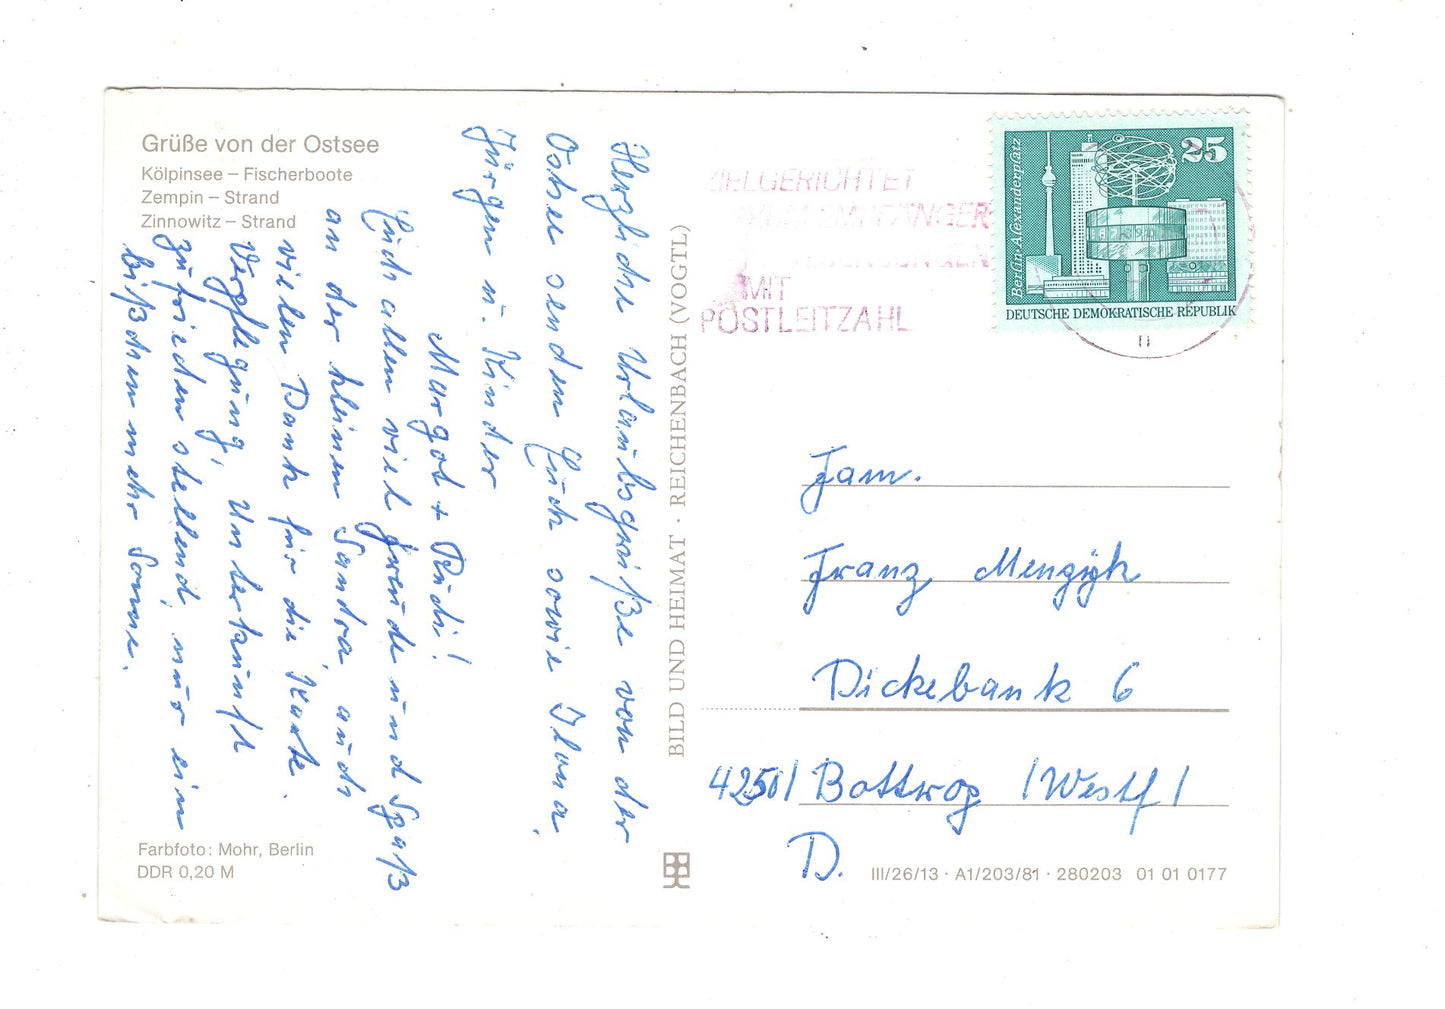 Grüße von der Ostsee
Kölpinsee – Fischerboote
Zempin – Strand
Zinnowitz – Strand
Herzliche Urlaubsgrüße von der
Ostsee senden Euch sowie Ilona,
Jürgen u. Kinder
Margot + Rudi!
Euch allen viel Freude und Spaß
an der kleinen Sandra, auch
vielen Dank für die Karte.
Verpflegung, Unterkunft
zufriedenstellend, nur ein
bißchen mehr Sonne.
Farbfoto: Mohr, Berlin
DDR 0,20 M
BILD UND HEIMAT · REICHENBACH (VOGTL)
ZIELGERICHTET
MIT
POSTLEITZAHL
25
Berlin-Alexanderplatz
DEUTSCHE DEMOKRATISCHE REPUBLIK
n
Fam.
Franz Menzyk
Dickebank 6
4250/ Bottrop /Westf/
D.
III/26/13 · A1/203/81 · 280203 01 01 0177